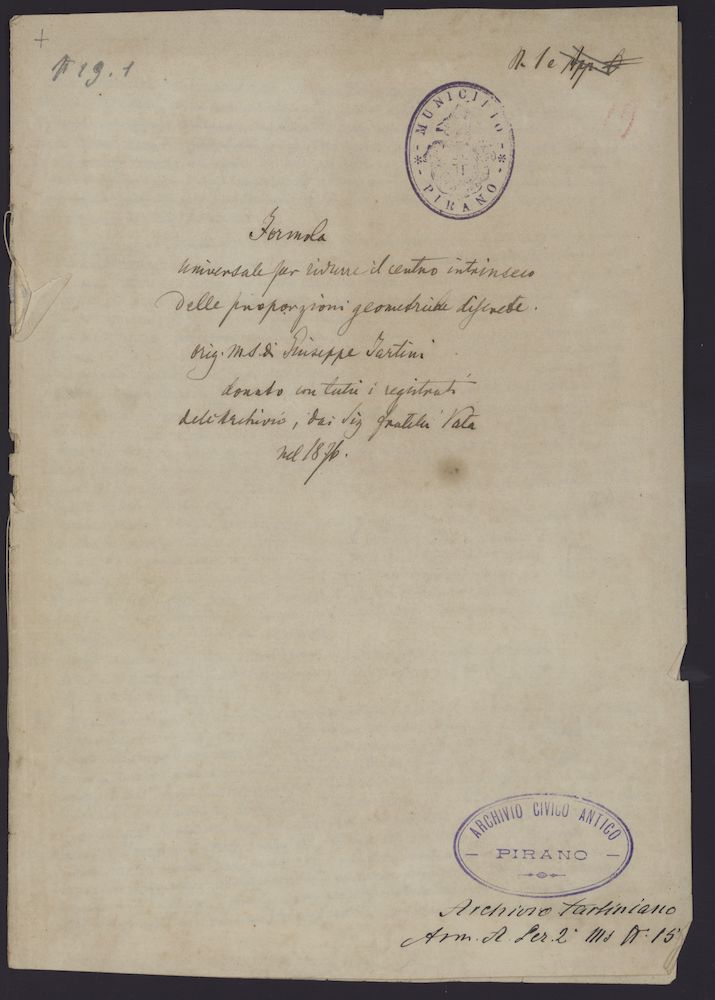 N 19. 1
N. 1 e App. B
19
MUNICIPIO
PIRANO
Formola
universale per ridurre il centro intrinseco
delle proporzioni geometriche discrete.
orig. m.s. di Giuseppe Tartini
donato con tutti i registrati
dell'Archivio, dai Sig fratelli Vata
nel 1876.
ARCHIVIO CIVICO ANTICO
PIRANO
Archivio Tartiniano
Arm. A. Ser. 2ª Ms N. 15